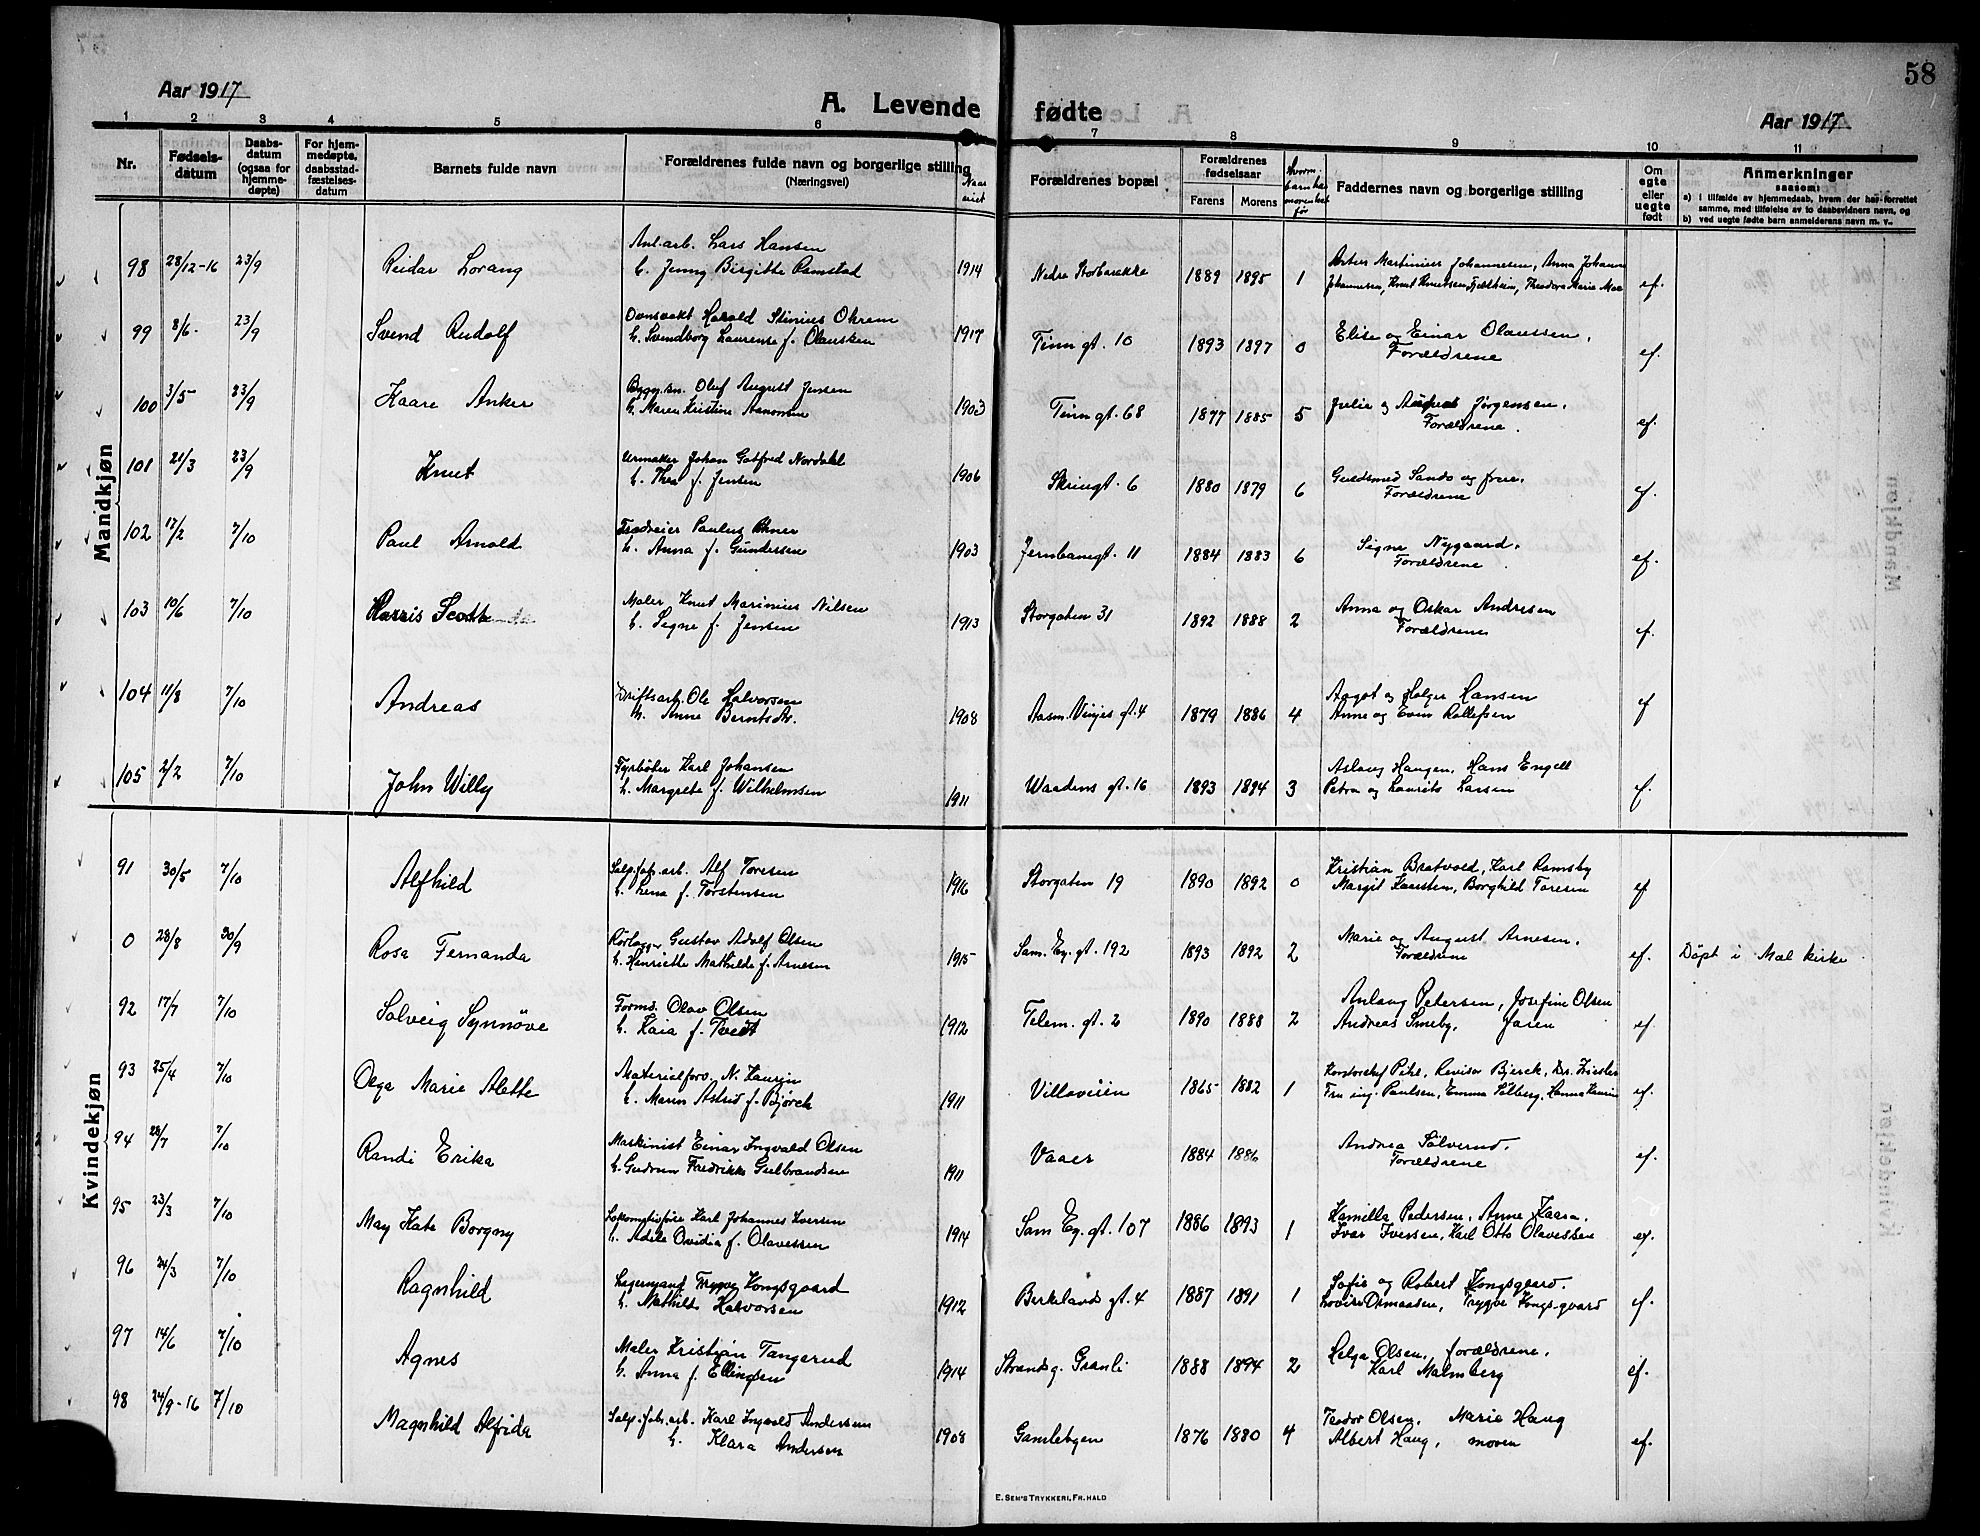 58
Aar 1917
A. Levende fødte
Aar 1917
1 2 3 4 5 6 7 8 9 10 11
Nr.
Fødsels-datum
Daabs-datum (ogsaa for hjemme-døpte)
For hjem-medøpte, daabsstad-fæstelses-datum
Barnets fulde navn
Forældrenes fulde navn og borgerlige stilling
(Næringsvei)
Naar viet
Forældrenes bopæl
Forældrenes fødselsaar
Farens Morens
Faddernes navn og borgerlige stilling
Om egte eller uegte født
Anmerkninger
saasom:
a) i tilfælde av hjemmedaab, hvem der har forrettet
samme, med tilføielse av to daabsvidners navn, og
b) ved uegte fødte barn anmelderens navn m. v.
Mandkjøn
98 28/12-16 23/9 Reidar Lorang Anl.arb. Lars Hansen
h. Jenny Birgitte Ramstad 1914 Nedre Storbarakke 1889 1895 1 Martinius Johannesen, Anna Johanne
Johannesen, Knut Knutsen Fjeldheim, Theodora Marie Moe ef.
99 8/6 23/9 Svend Rudolf Ovnsvakt Harald Stinius Okrem
h. Svendborg Laurense f. Olaussen 1917 Tinn gt. 10 1893 1897 0 Elise og Einar Olaussen,
Forældrene ef.
100 3/5 23/9 Kaare Anker Bygg.sn. Oluf August Jensen
h. Maren Kristine Aanonsen 1903 Tinn gt. 68 1877 1885 5 Julie og August Jørgensen.
Forældrene. ef.
101 21/3 23/9 Knut Urmaker Johan Gotfred Nordahl
h. Thea f. Jensen 1906 Skringt. 6 1880 1879 6 Guldsmed Sando og frue.
Forældrene ef.
102 17/2 7/10 Paul Arnold Paulus
h. Anna f. Gundersen 1903 Jernbanegt. 11 1884 1883 6 Signe Nygaard.
Forældrene ef.
103 10/6 7/10 Harris Scott Maler Knut Marinius Nilsen
h. Signe f. Jensen 1913 Storgaten 31 1892 1888 2 Anna og Oskar Andresen
Forældrene ef.
104 11/8 7/10 Andreas Driftsarb. Ole Halvorsen
h. Anne Berntsdt. 1908 Aasm. Vinjes gt. 4 1879 1886 4 Aagot og Holger Hansen
Anne og Even Rollefsen ef
105 2/2 7/10 John Willy Fyrbøter Karl Johansen
h. Margrete f. Wilhelmsen 1911 Waadens gt. 16 1893 1894 3 Aslaug Haugen, Hans Engell
Petra og Laurits Larsen ef.
Kvindekjøn
91 30/5 7/10 Alfhild Salp.fab.arb. Alf Toresen
h. Lena f. Torstensen 1916 Storgaten 19 1890 1892 0 Kristian Bratvold, Karl Ramsby
Margit Kaasten, Borghild Toresen ef
0 28/8 30/9 Rosa Fernanda Rørlægger Gustav Adolf Olsen
h. Henriette Mathilde f. Arnesen 1915 Sam. Ey. gt. 192 1893 1892 2 Marie og August Arnesen.
Forældrene ef. Døpt i Mæl kirke
92 17/7 7/10 Solveig Synnøve Formd. Olav Olsen
h. Kaia f. Tvedt 1912 Telem. gt. 2 1890 1888 2 Anlaug Petersen, Josefine Olsen
Andreas Smeby, faren ef
93 25/4 7/10 Olga Marie Alette Materialforv. N. Kaurin
h. Maren Astrid f. Bjørck 1911 Villaveien 1865 1882 1 Kontorchef Pihl, Revisor Bjerck, Dr.
Fru ing. Paulsen, Emma Solberg, Hanna Kaurin ef.
94 28/7 7/10 Randi Erika Maskinist Einar Ingvald Olsen
h. Gudrun Fredrikke Gulbrandsen 1911 Vaaer 1884 1886 Andrea Sølverud.
Forældrene ef.
95 23/3 7/10 May Kate Borgny Lokomotivfører Karl Johannes Iversen
h. Adele Ovidia f. Olavessen 1914 Sam Ey. gt. 107 1886 1893 1 Kamilla Pedersen, Anne Kaasa.
Ivar Iversen, Karl Otto Olavessen ef.
96 24/3 7/10 Ragnhild Lagermand Trygve Kongsgaard
h. Mathilde Halvorsen 1912 Berkelands gt. 4 1887 1891 1 Sofie og Robert Kongsgaard.
Lovise Osmaasen, Trygve Kongsgaard ef.
97 14/6 7/10 Agnes Maler Kristian Tangerud
h. Anna f. Ellingsen 1914 Strandg. Granli 1888 1894 2 Helga Olsen, forældrene.
Karl Malmberg ef.
98 24/9-16 7/10 Magnhild Alfrida Salp.fab.arb. Karl Ingvald Andersen
h. Klara Andersen 1908 Gamlebyen 1876 1880 4 Teodor Olsen. Marie Haug
Albert Haug, moren ef.
E. SEM'S TRYKKERI, FR.HALD